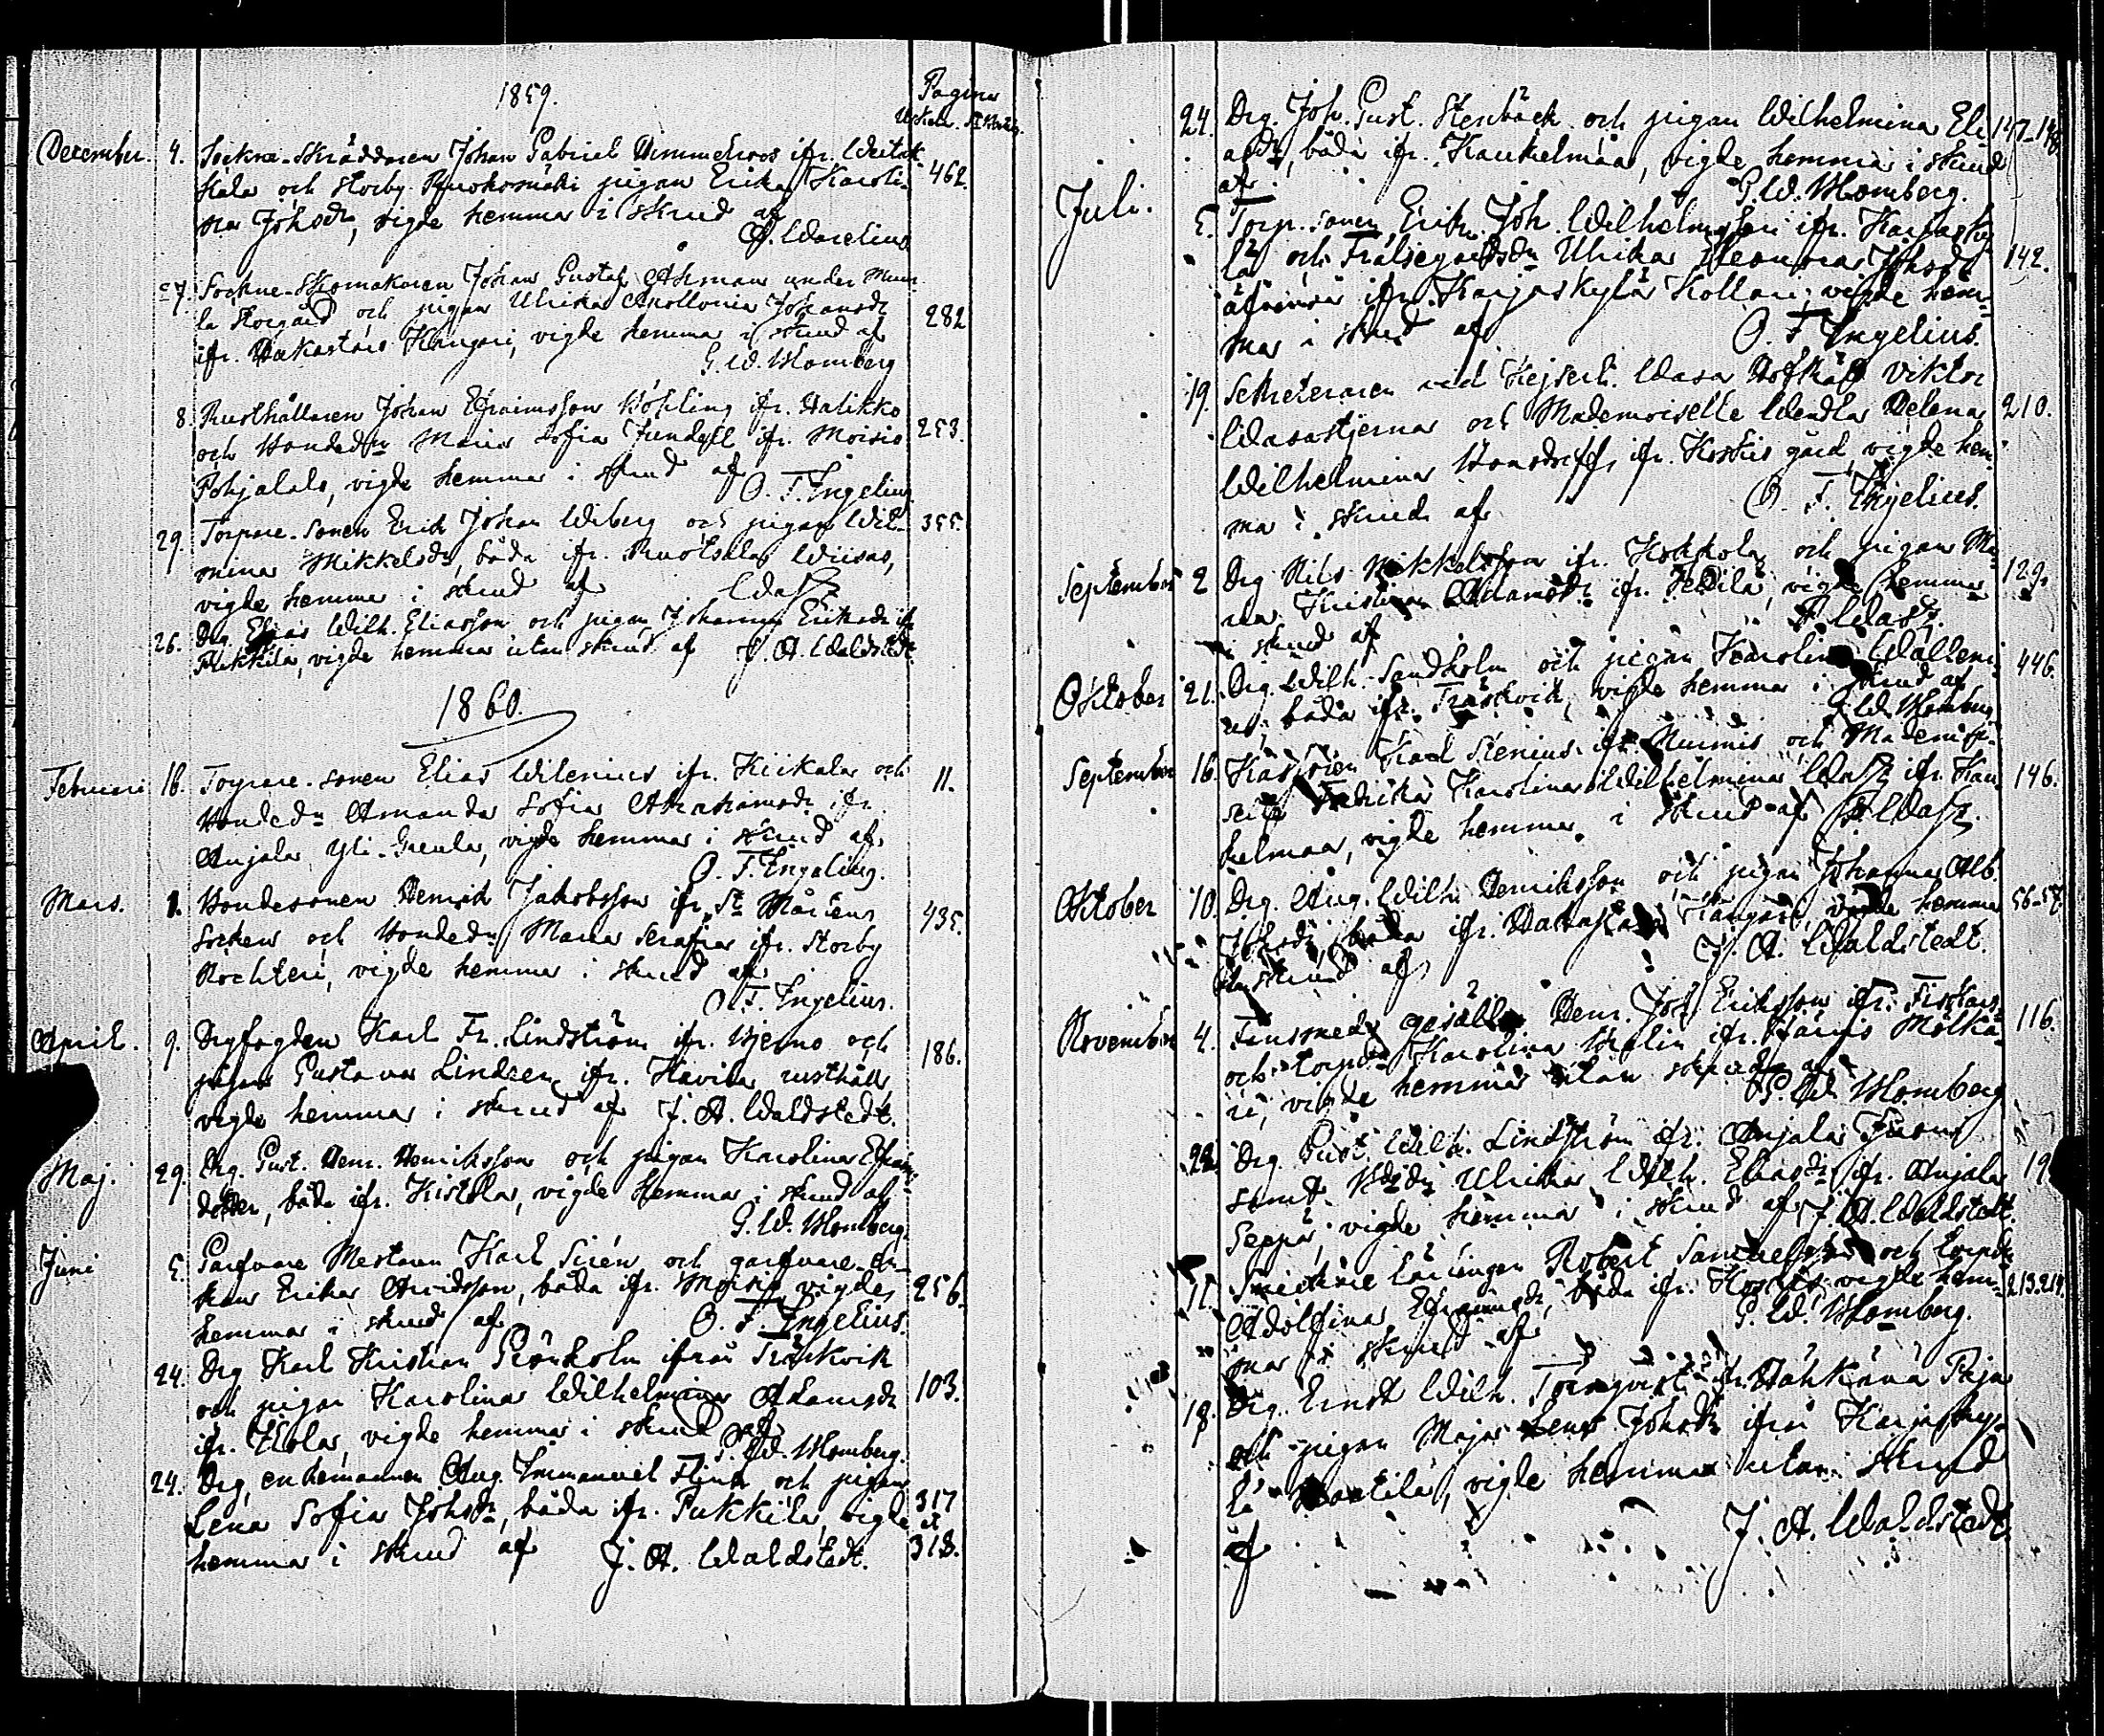 1859.
Pagina
December. 4. Sockne-Skräddaren Johan Gabriel Himmelroos ifr.
och Storby Ruokomäki pigan Erika Karoli- 462.
na Johsdr, vigde hemma i skrud af
A. Warelius
27. Sockne-Skomakaren Johan Gustaf Åhman under
Storgård och pigan Ulrika Apollonia Johansdr 282
ifr. Hakastaro Kangari, vigde hemma i skrud af
G. W. Blomberg
8. Rusthållaren Johan Efraimsson Böhling ifr. Halikko
och Bondedn Maria Sofia Jundell ifr. Moisio 253.
Pohjalals, vigde hemma i skrud af
O. F. Ingelius
29. Torpare-sonen Erik Johan Wiberg och pigan Wil- 355.
mina Mikkelsdr, båda ifr. Ruotsala
vigde hemma i skrud af
26. Drg Elias Wilh. Eliasson och pigan Johanna Eriksdr ifr
vigde hemma utan skrud af J. A. Waldstedt.
1860.
Februari 16. Torpare-sonen Elias Wilenius ifr. Kiikala och 11.
Bondedn Amanda Sofia Abrahamsdr ifr
Anjala Yli-Seula, vigde hemma i skrud af
O. F. Ingelius.
Mars. 1. Bondesonen Henrik Jakobsson ifr. St Mårtens
Socken och Bondedn Maria Serafia ifr. Storby 435.
vigde hemma i skrud af
O. F. Ingelius.
April. 9. Drgfogden Karl Fr. Lindström ifr. Bjerno och
pigan Gustava Lindeen ifr. rusthåll 186.
vigde hemma i skrud af J. A. Waldstedt.
Maj. 29. Drg. Gust. Henr. Henriksson och pigan Karolina Efraims-
dotter, båda ifr. Kistola, vigde hemma i skrud af
G. W. Blomberg.
Juni 5. Garfvare Mestaren Karl Sirén och garfvare-en-
kan Erika Arvidsson, båda ifr. Moisio vigde 256.
hemma i skrud af O. F. Ingelius.
24. Drg Karl Kristian Grönholm ifrån Träskvik
och pigan Karolina Wilhelmina Adamsdr 103.
ifr. vigde hemma i skrud af
G. W. Blomberg.
24. Drg, enkemannen Aug. Immanuel Flink och pigan
Lena Sofia Johsdr, båda ifr. Pukkila, vigde 317 et
hemma i skrud af J. A. Waldstedt. 318.
24. Drg. Joh. Gust. Stenbäck och pigan Wilhelmina Eli- 147-148
asdr, båda ifr. Kaukelmaa, vigde hemma i skrud
af G. W. Blomberg.
Juli. 5. Torp. sonen Erik Joh. Wilhelmsson ifr. Karjasky-
lä och Frälsegårdsdn Ulrika Eleonora Johsdr 142.
äfvenså ifr. Karjaskylä Kollari, vigde hem-
ma i skrud af O. F. Ingelius.
19. Sekreteraren vid Kejserl. Wasa Hofrätt Viktor
Wasastjerna och Mademoiselle Wendla Helena 210.
Wilhelmina Bonsdorff, ifr. Koskis gård, vigde hem-
ma i skrud af O. F. Ingelius.
September 2 Drg Nils Mikkelsson ifr. Kokkola och pigan Ma-
ria Kristina Adamsdr ifr. vigde hemma 129.
i skrud af
Oktober 21. Drg. Wilh. Sandholm och pigan Karolina Walleni- 446.
us, båda ifr. Träskvik, vigde hemma i skrud af
G. W. Blomberg
September 16. Karl Stenius ifr. Nurmis och Mademoi-
selle Fredrika Karolina Wilhelmina ifr. Kau- 146.
kelmaa, vigde hemma i skrud af
Oktober 10. Drg. Aug. Wilh. Henriksson och pigan Johanna Alb.
Johsdr, båda ifr. Hakastaro Kangari, vigde hemma 56-57.
skrud af J. A. Waldstedt.
November 4. gesällen Henr. Joh. Eriksson ifr. Fiskars
och torpdn Karolina Malin ifr. 116.
vigde hemma utan skrud af
G. W. Blomberg
22. Drg Gust. Wilh. Lindström ifr. Anjala
samt Ulrika Wilh. Eliasdr ifr. Anjala 19
Seppä, vigde hemma i skrud af J. A. Waldstedt.
Robert Samuelsson och torpdn
Adolfina Efraimsdr, båda ifr. Koskis vigde hem- 213.214
ma i skrud af G. W. Blomberg.
18. Drg. Ernst Wilh. Törnqvist ifr. Hähkänä Paja
och pigan Maja Lena Johsdr ifrån Karjasky-
lä vigde hemma utan skrud
af J. A. Waldstedt.